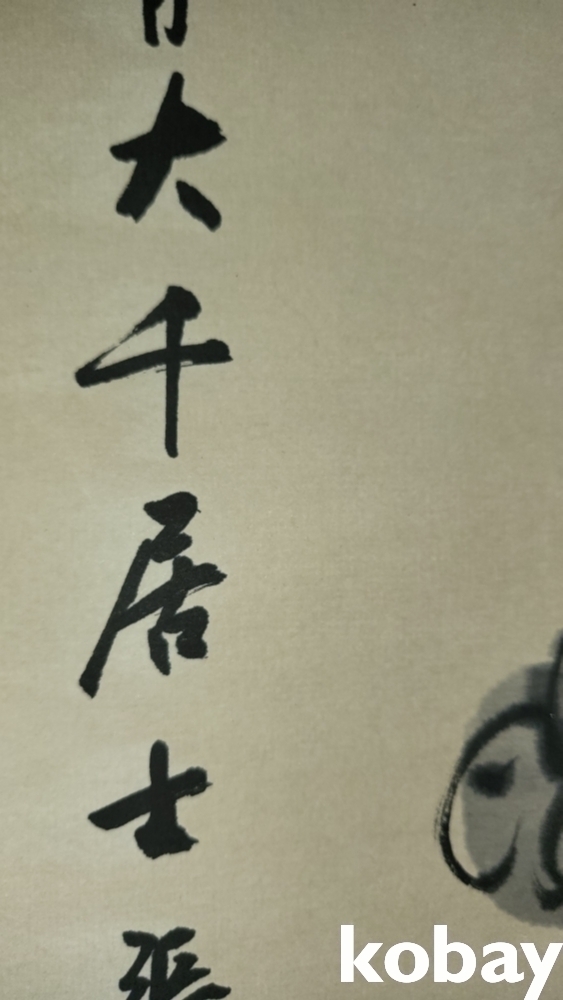 大千居士張
kobay